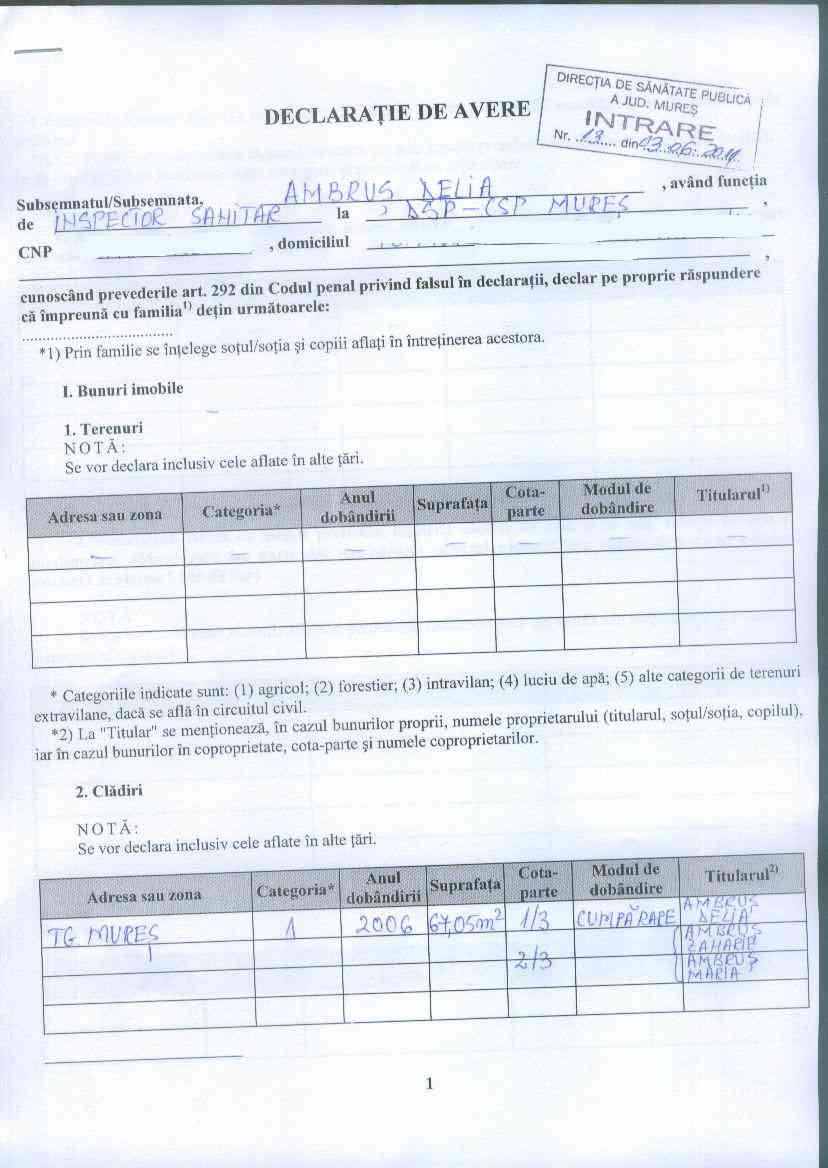 DECLARAȚIE DE AVERE
DIRECȚIA DE SĂNĂTATE PUBLICĂ
A JUD. MUREȘ
INTRARE
Nr. 13 din 03.06.2011
Subsemnatul/Subsemnata, AMBRUS DELIA , având funcția
de INSPECTOR SANITAR la DSP-CSP MUREȘ ,
CNP , domiciliul
,
cunoscând prevederile art. 292 din Codul penal privind falsul în declarații, declar pe proprie răspundere
că împreună cu familia1) dețin următoarele:
......................................
*1) Prin familie se înțelege soțul/soția și copiii aflați în întreținerea acestora.
I. Bunuri imobile
1. Terenuri
NOTĂ:
Se vor declara inclusiv cele aflate în alte țări.
Adresa sau zona Categoria* Anul dobândirii Suprafața Cota-parte Modul de dobândire Titularul1)
— — — — — — —
* Categoriile indicate sunt: (1) agricol; (2) forestier; (3) intravilan; (4) luciu de apă; (5) alte categorii de terenuri
extravilane, dacă se află în circuitul civil.
*2) La "Titular" se menționează, în cazul bunurilor proprii, numele proprietarului (titularul, soțul/soția, copilul),
iar în cazul bunurilor în coproprietate, cota-parte și numele coproprietarilor.
2. Clădiri
NOTĂ:
Se vor declara inclusiv cele aflate în alte țări.
Adresa sau zona Categoria* Anul dobândirii Suprafața Cota-parte Modul de dobândire Titularul2)
TG MUREȘ 1 2006 67,05m2 1/3 CUMPĂRARE AMBRUȘ DELIA
2/3 AMBRUȘ ZAHARIE
AMBRUȘ MARIA
1